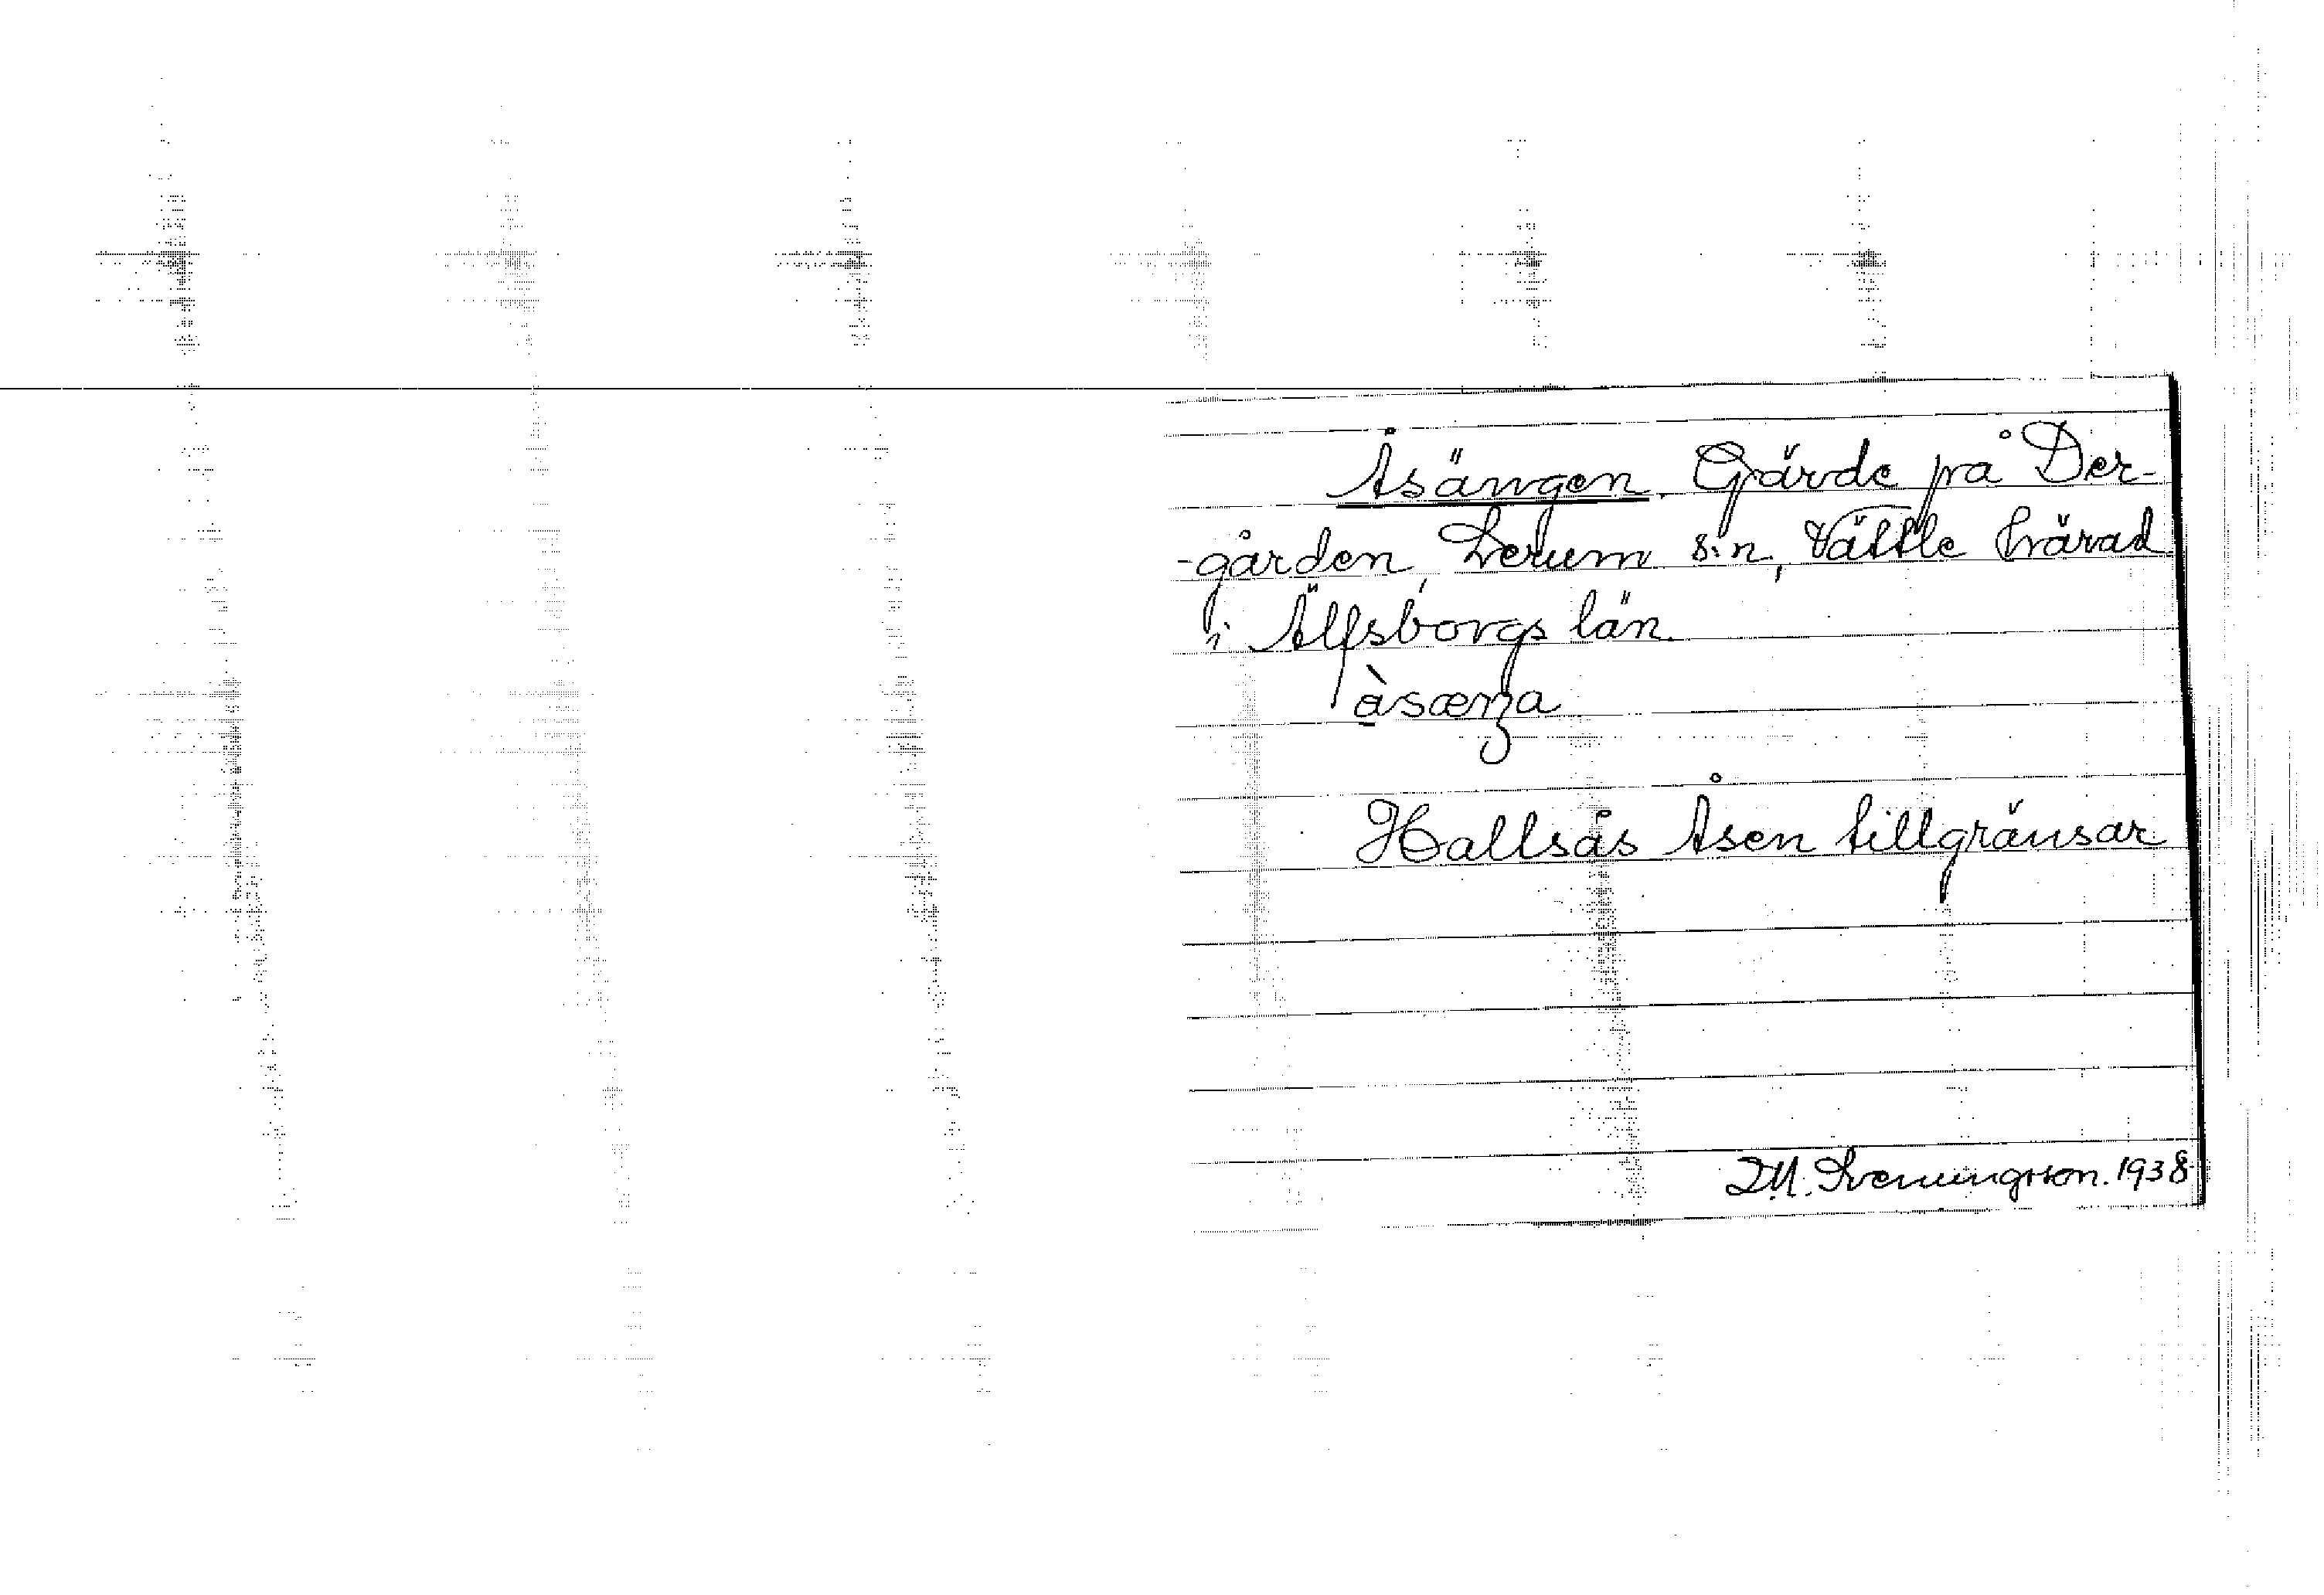 Åsängen. Gärde på Der-
-gården, Lerum s:n, Vättle härad
i Älfsborgs län.
åsæŋa
Hallsås Åsen tillgränsar
D.M. Svenningsson. 1938